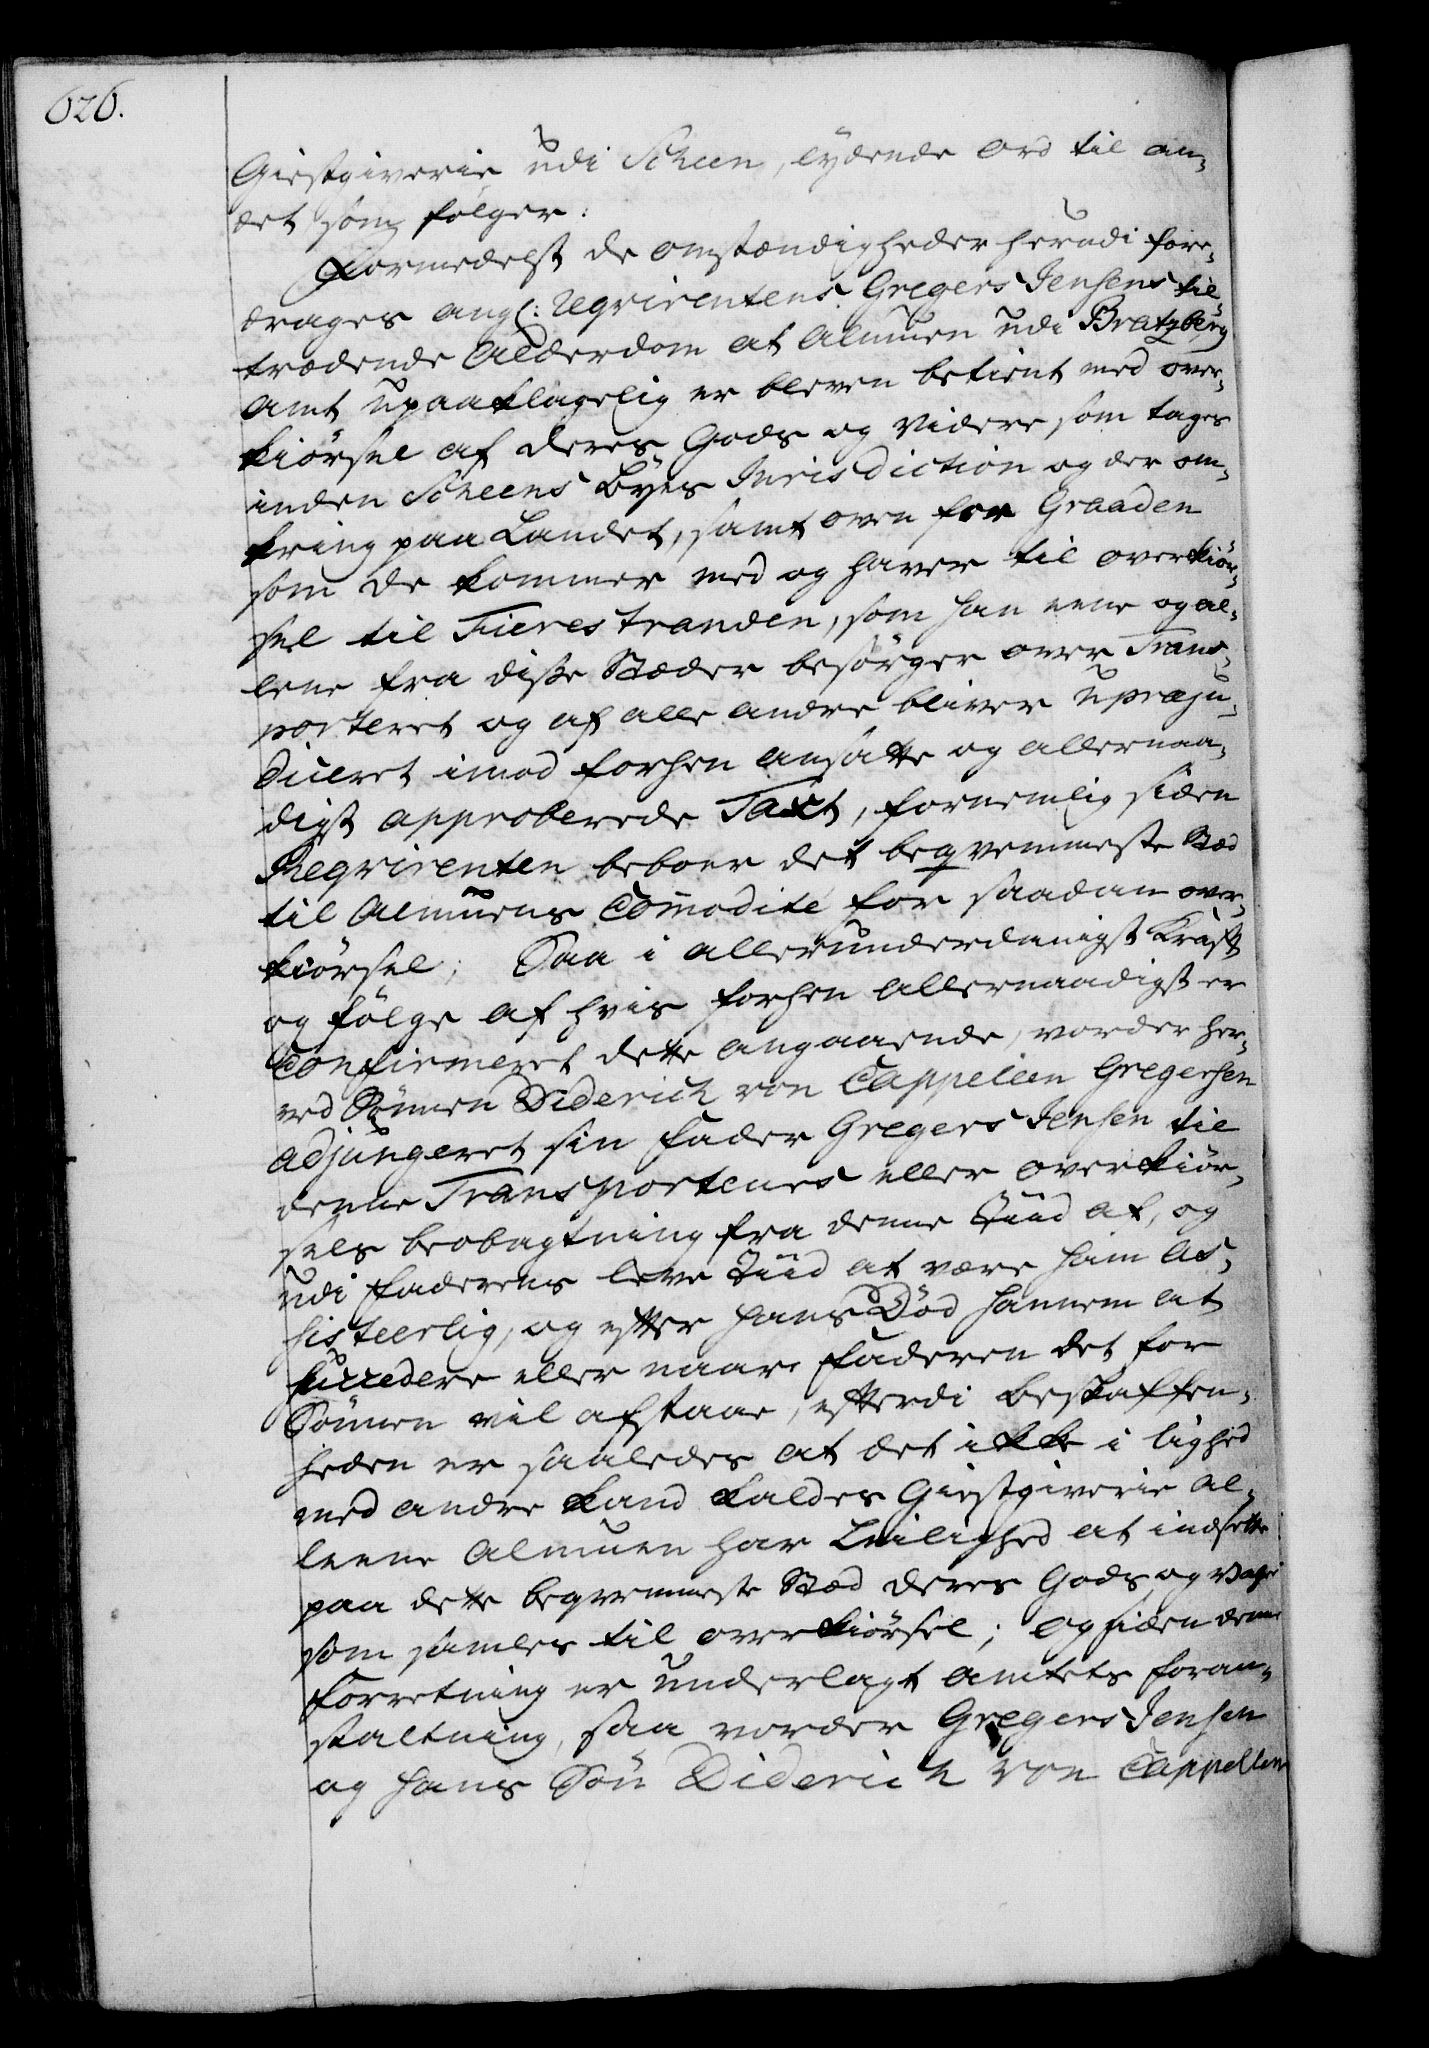 626.
Giestgiverie udi Scheen, lydende ord til an-
det som følger:
Formedelst de omstændigheder herudi fore-
drages ang: Reqvirentens Gregers Jensens til-
trædende Alderdom at Almuen udi Bratzberg
amt upaaklagelig er bleven betient med over-
kiørsel af deres Gods og Videre som tages
inden Scheens Byes Jurisdiction og der om-
kring paa Landet, samt oven for Graaden
som de kommer med og haver til overkiør-
sel til Fierestranden, som han eene og al-
leene fra disse Stæder besørger over Trans-
porteret og af alle andre bliver upræju-
diceret imod forhen ansatte og allernaa-
digst approberede Taxt, fornemlig siden
Reqvirenten beboer det beqvemmeste Stæd
til Almuens Commodité for saadan over-
kiørsel; Saa i allerunderdanigst Krafft
og følge af hvis forhen allernaadigst er
Confirmeret dette angaaende, vorder her-
ved Sønnen Diderich von Cappelen Gregersen
adjungeret sin fader Gregers Jensen til
denne Transportenes eller overkiør-
sels beobagtning fra denne Tiid af, og
udi faderens leve Tiid at være ham As-
sisteerlig, og efter hans Død hannem at
succedere eller naar faderen det for
Sønnen vil afstaae, efterdi beskaffen-
heden er saaledes at det ikke i lighed
med andre kand kaldes Giestgiverie al-
leene Almuen har Leilighed at indsette
paa dette beqvemmeste Stæd deres Gods og
som samles til overkiørsel; Og siden denne
forretning er underlagt amtets foran-
staltning, saa vorder Gregers Jensen
og hans Søn Diderich von Cappellen